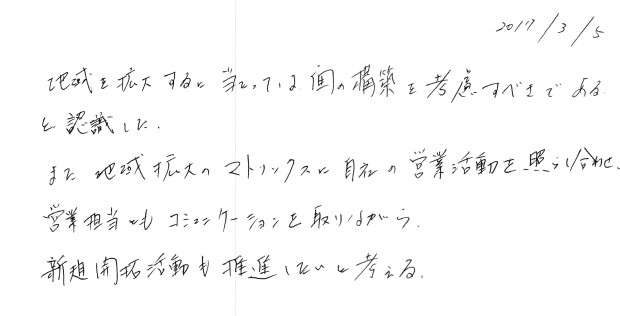 2017/3/5
地域を拡大するに当たっては面の構築を考慮すべきである
と認識した.
また地域拡大のマトリックスに自社の営業活動を照らし合わせ、
営業担当ともコミュニケーションを取りながら、
新規開拓活動も推進したいと考える.